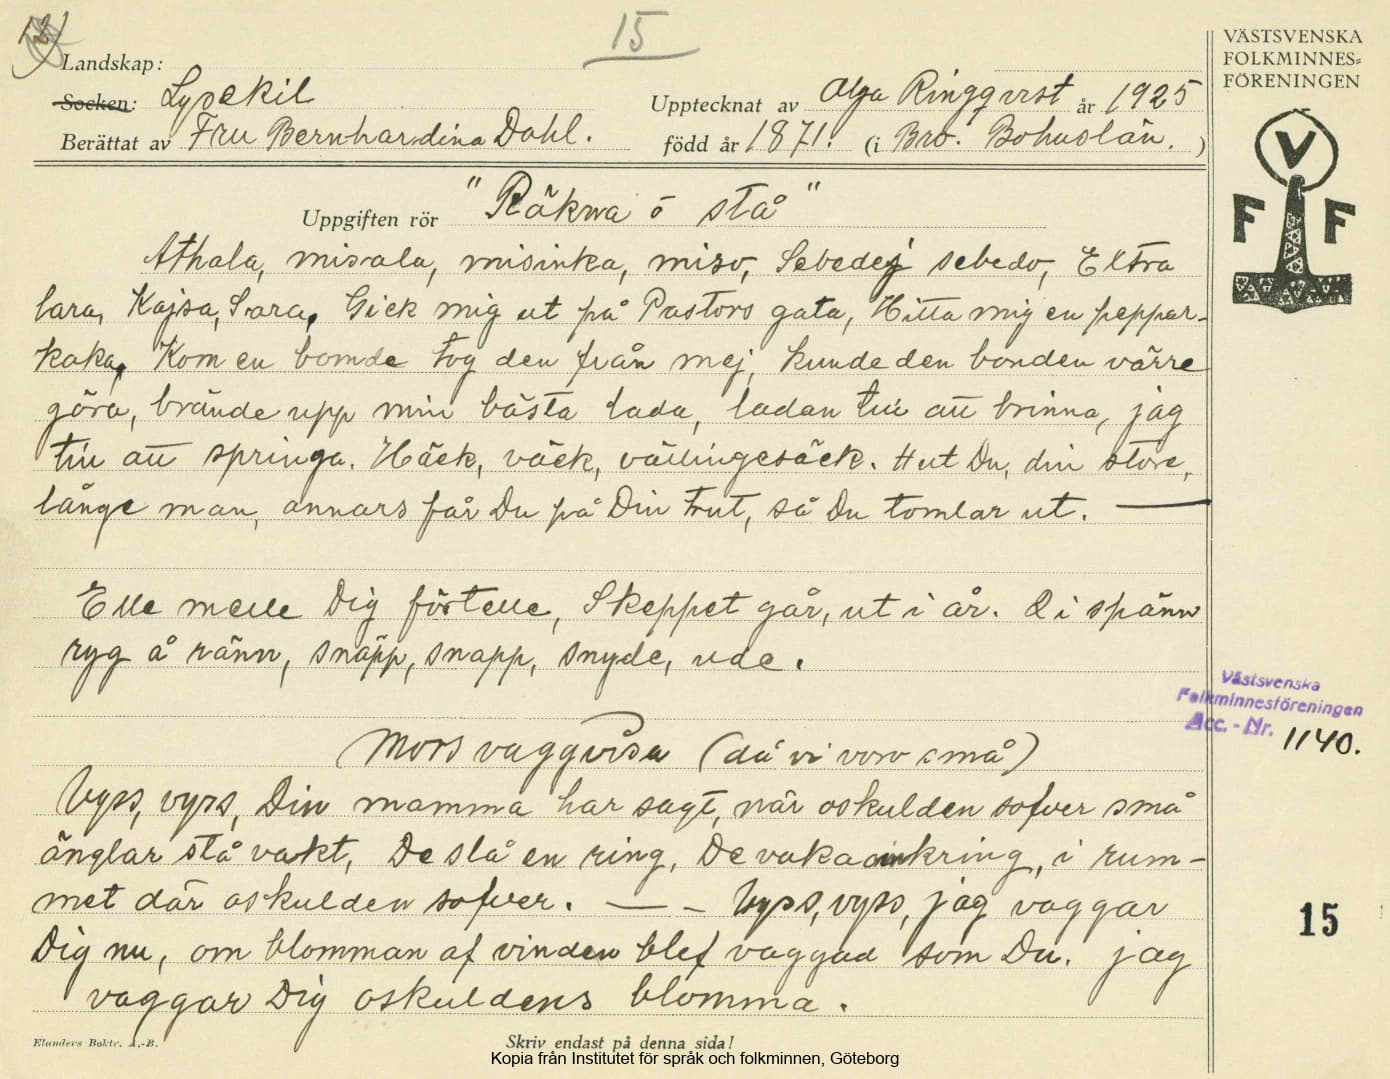 12)
15
VÄSTSVENSKA
FOLKMINNES=
FÖRENINGEN
Landskap:
Socken: Lysekil
Upptecknat av Olga Ringqvist år 1925
Berättat av Fru Bernhardina Dahl.
född år 1871. (i Bro. Bohuslän.)
V
F F
Uppgiften rör "Räkna ô stå"
Athala, misala, misinka, miso, Sebedej sebedo, Extra
lara, Kajsa, Sara, Gick mig ut på Pastors gata, Hitta mig en peppar-
kaka, Kom en bonde tog den från mej, kunde den bonden värre
göra, brände upp min bästa lada, ladan till att brinna, jag
till att springa. Häck, väck, vällingesäck. Hut Du, din store,
långe man, annars får Du på Din trut, så Du tomlar ut. —
Elle melle Dig förtelle, Skeppet går, ut i år. Q i spänn
ryg å ränn, snäpp, snapp, snyde, ude.
Mors vaggvisa (då vi voro små)
Vyss, vyss, Din mamma har sagt, när oskulden sofver små
änglar stå vakt, De slå en ring, De vaka omkring, i rum-
met där oskulden sofver. — - Vyss, vyss, jag vaggar
Dig nu, om blomman af vinden blef vaggad som Du. jag
vaggar Dig oskuldens blomma.
Västsvenska
Folkminnesföreningen
Acc.-Nr. 1140.
15
Elanders Boktr. A.-B.
Skriv endast på denna sida!
Kopia från Institutet för språk och folkminnen, Göteborg